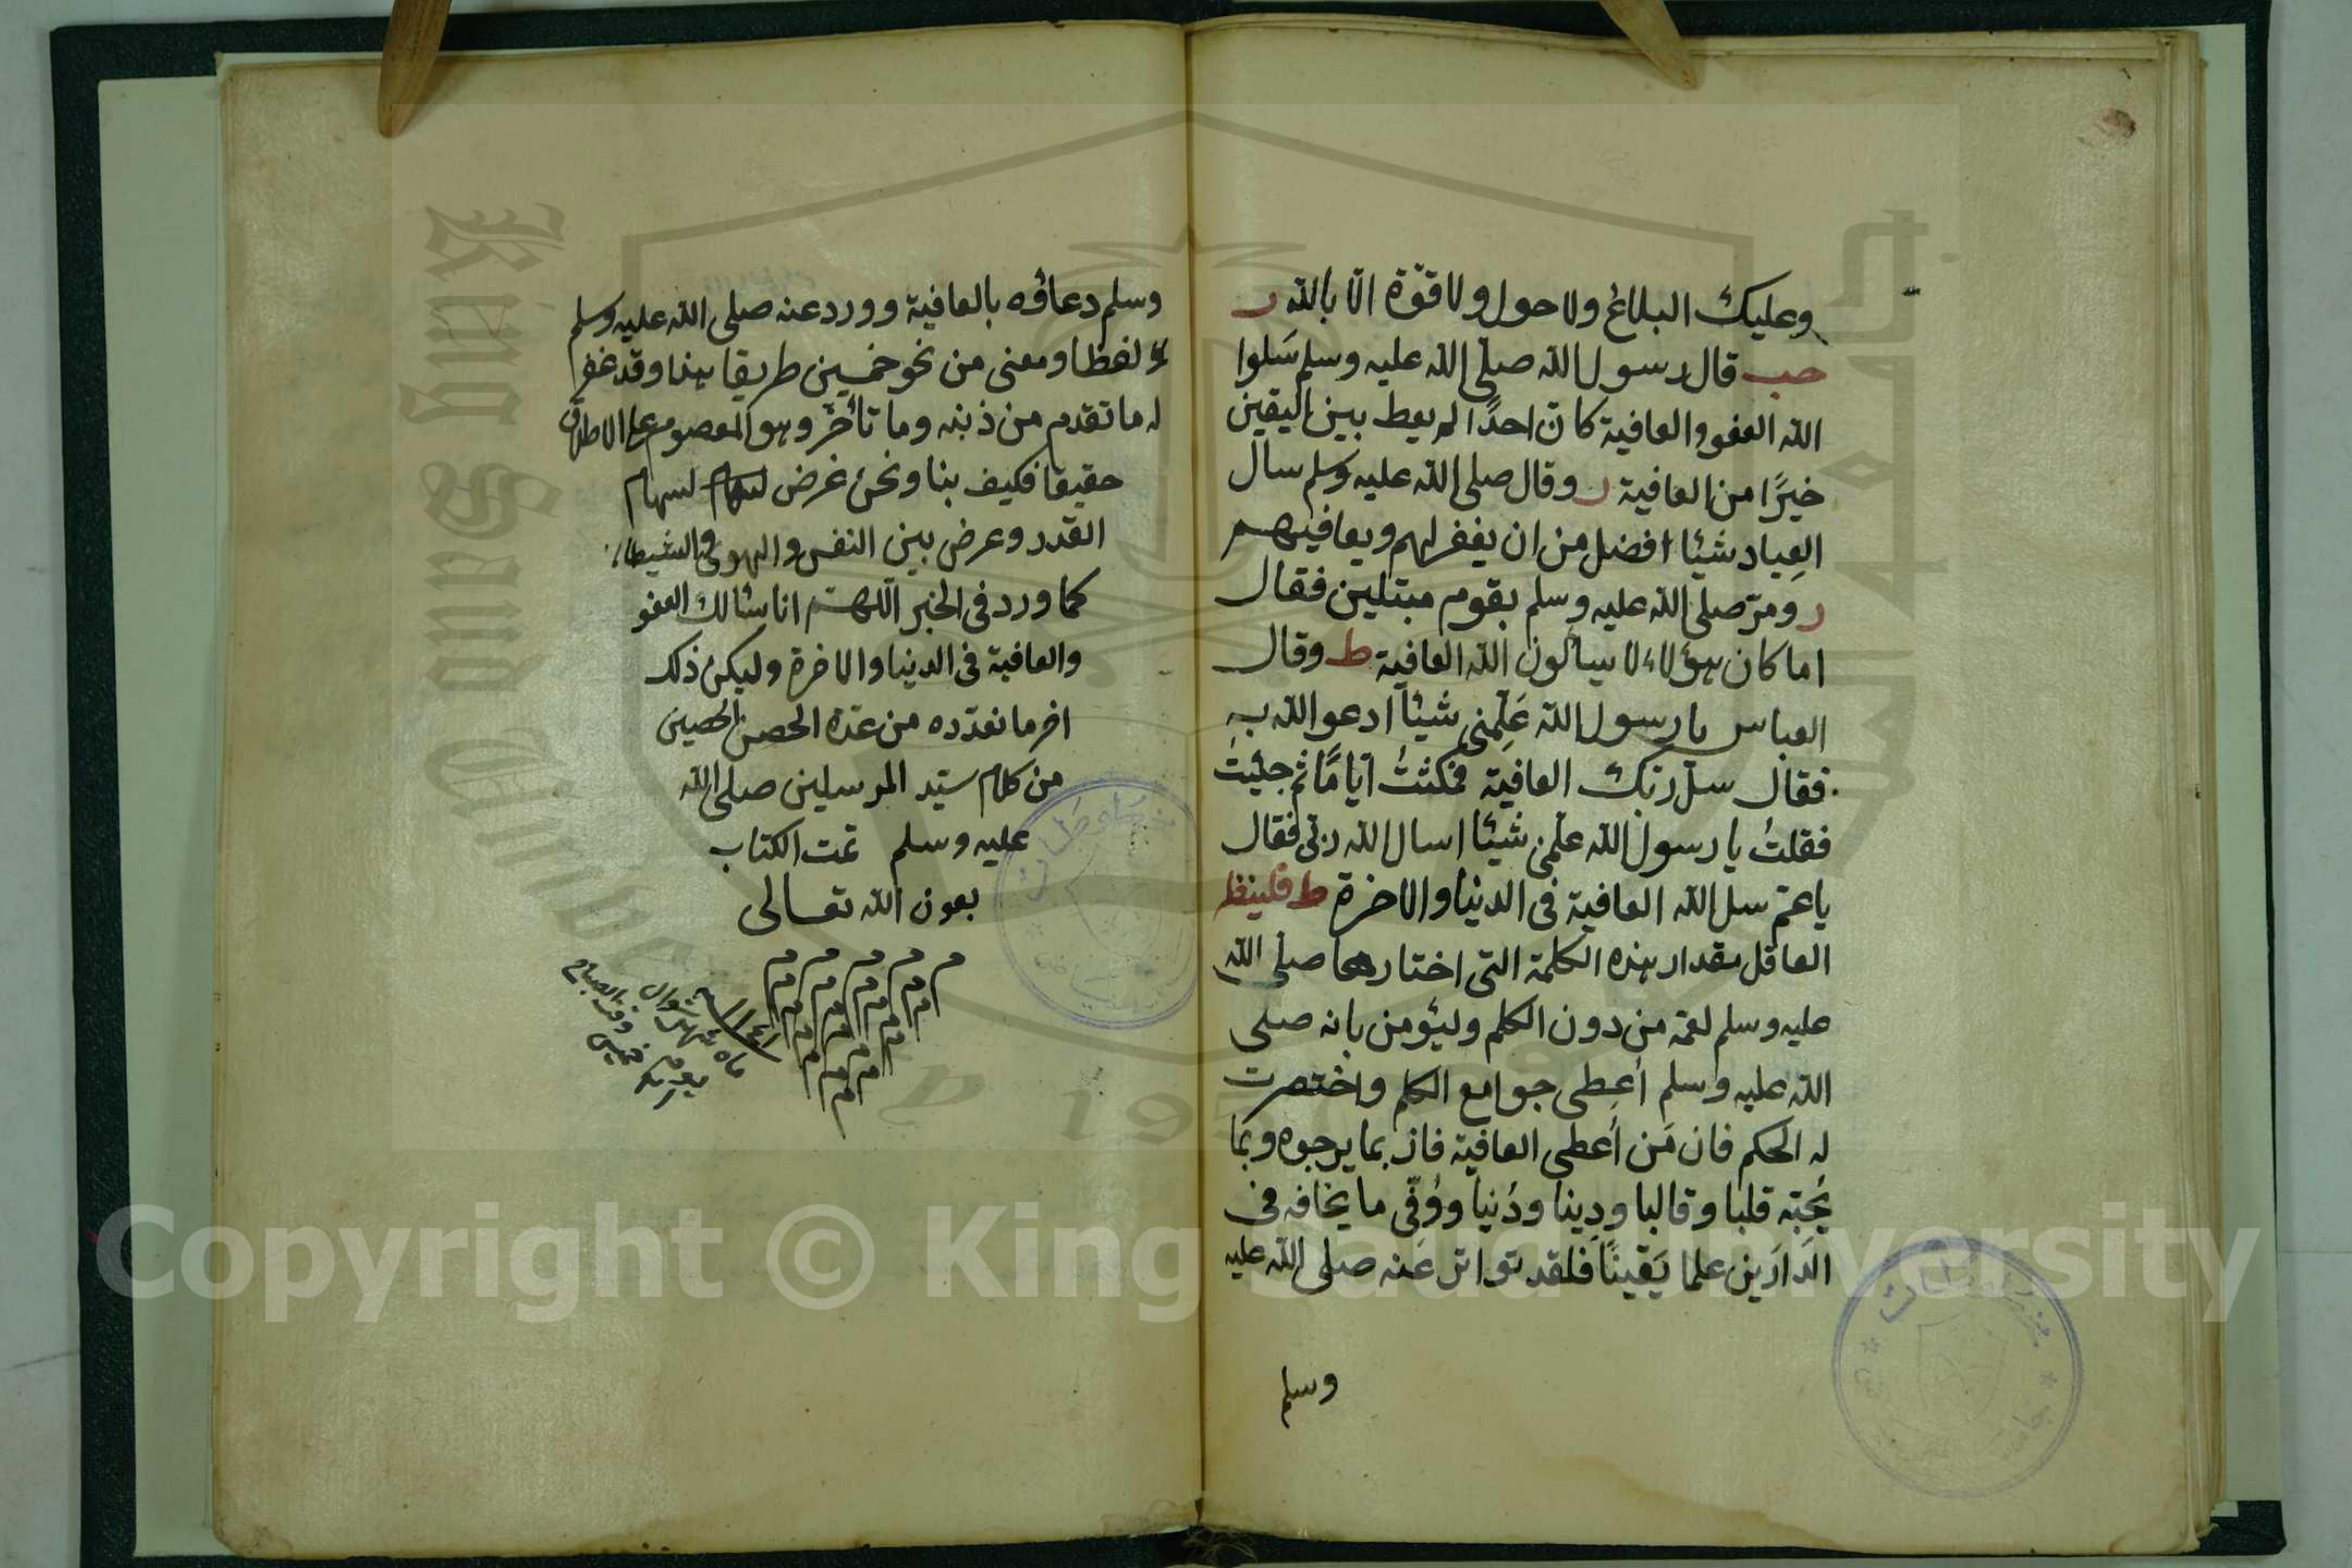 وعليك البلاغ ولا حول ولا قوّة الّا بالله ر
حب قال رسول الله صلّى الله عليه وسلم سَلوا
الله العفو والعافية كانّ احدًا لم يعط بين اليقين
خيرًا من العافية ر وقال صلى الله عليه وسلم سال
العِباد شيئا افضل من ان يغفر لهم ويعافيهم
ر ومرّ صلى الله عليه وسلم بقوم مبتلين فقال
اما كان هؤلاء لا يسألون الله العافية ط وقال
العباس يا رسول الله عَلِّمنى شيئا ادعو الله به
فقال سل ربّك العافية فمكثتُ ايّامًا ثم جئيتُ
فقلتُ يا رسول الله علّمنى شيئا اسال الله ربّى فقال
يا عمّ سل الله العافية فى الدنيا والاخرة ط فلينظر
العاقل مقدار هذه الكلمة التى اختارها صلى الله
عليه وسلم لعمّه من دون الكلم وليؤمن بانه صلى
الله عليه وسلم اُعطى جوامع الكلم واختصرت
له الحكم فان مَن اُعطى العافية فاز بما يرجوه وبما
يُحبّه قلبا وقالبا ودِينا ودُنيا ووُقّى ما يخافه فى
الدارَين علما يَقينًا فلقد تواتر عَنه صلى الله عليه
وسلم
وسلم دعاؤه بالعافية وورد عنه صلى الله عليه وسلم
لفظا ومعنى من نحو خمسين طريقا هذا وقد غفر
له ما تقدم من ذنبه وما تأخّر وهو المعصوم على الاطلاق
حقيقا فكيف بنا ونحن غرض لسهام لسهام
القدر وعرض بين النفس والهوى والشيطان
كما ورد فى الخبر اللّهمّ انا نسئالك العفو
والعافية فى الدنيا والاخرة وليكن ذلك
اخر ما نعدّده من عدّة الحصن الحصين
من كلام سيّد المرسلين صلى الله
عليه وسلم تمت الكتاب
بعون الله تعالى
م م م م م
سنه ١١٤١
ماه شهر شوال
يوم خميس وقت الصباح
King Saud University
195
Copyright © King Saud University